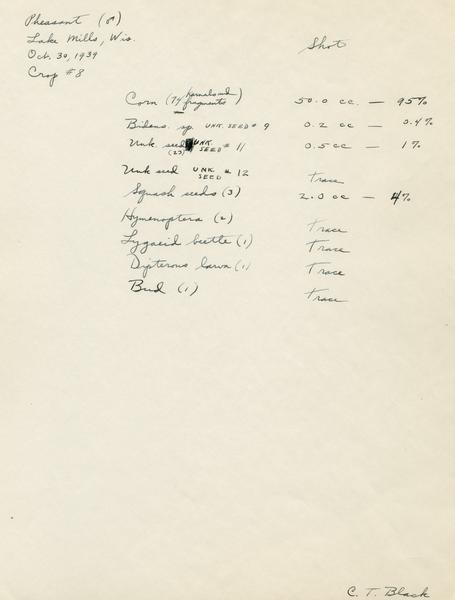 Pheasant (♂)
Lake Mills, Wis.
Shot
Oct. 30, 1939
Crop #8
Corn (74 kernels and fragments) 50.0 cc. — 95%
Bidens sp. UNK. SEED # 9 0.2 cc — 0.4%
Unk seed (23) UNK. SEED # 11 0.5 cc — 1%
Unk seed UNK SEED # 12 trace
Squash seeds (3) 2.0 cc — 4%
Hymenoptera (2) trace
Lygaeid beetle (1) trace
Dipterous larva (1) trace
Bud (1) trace
C. T. Black